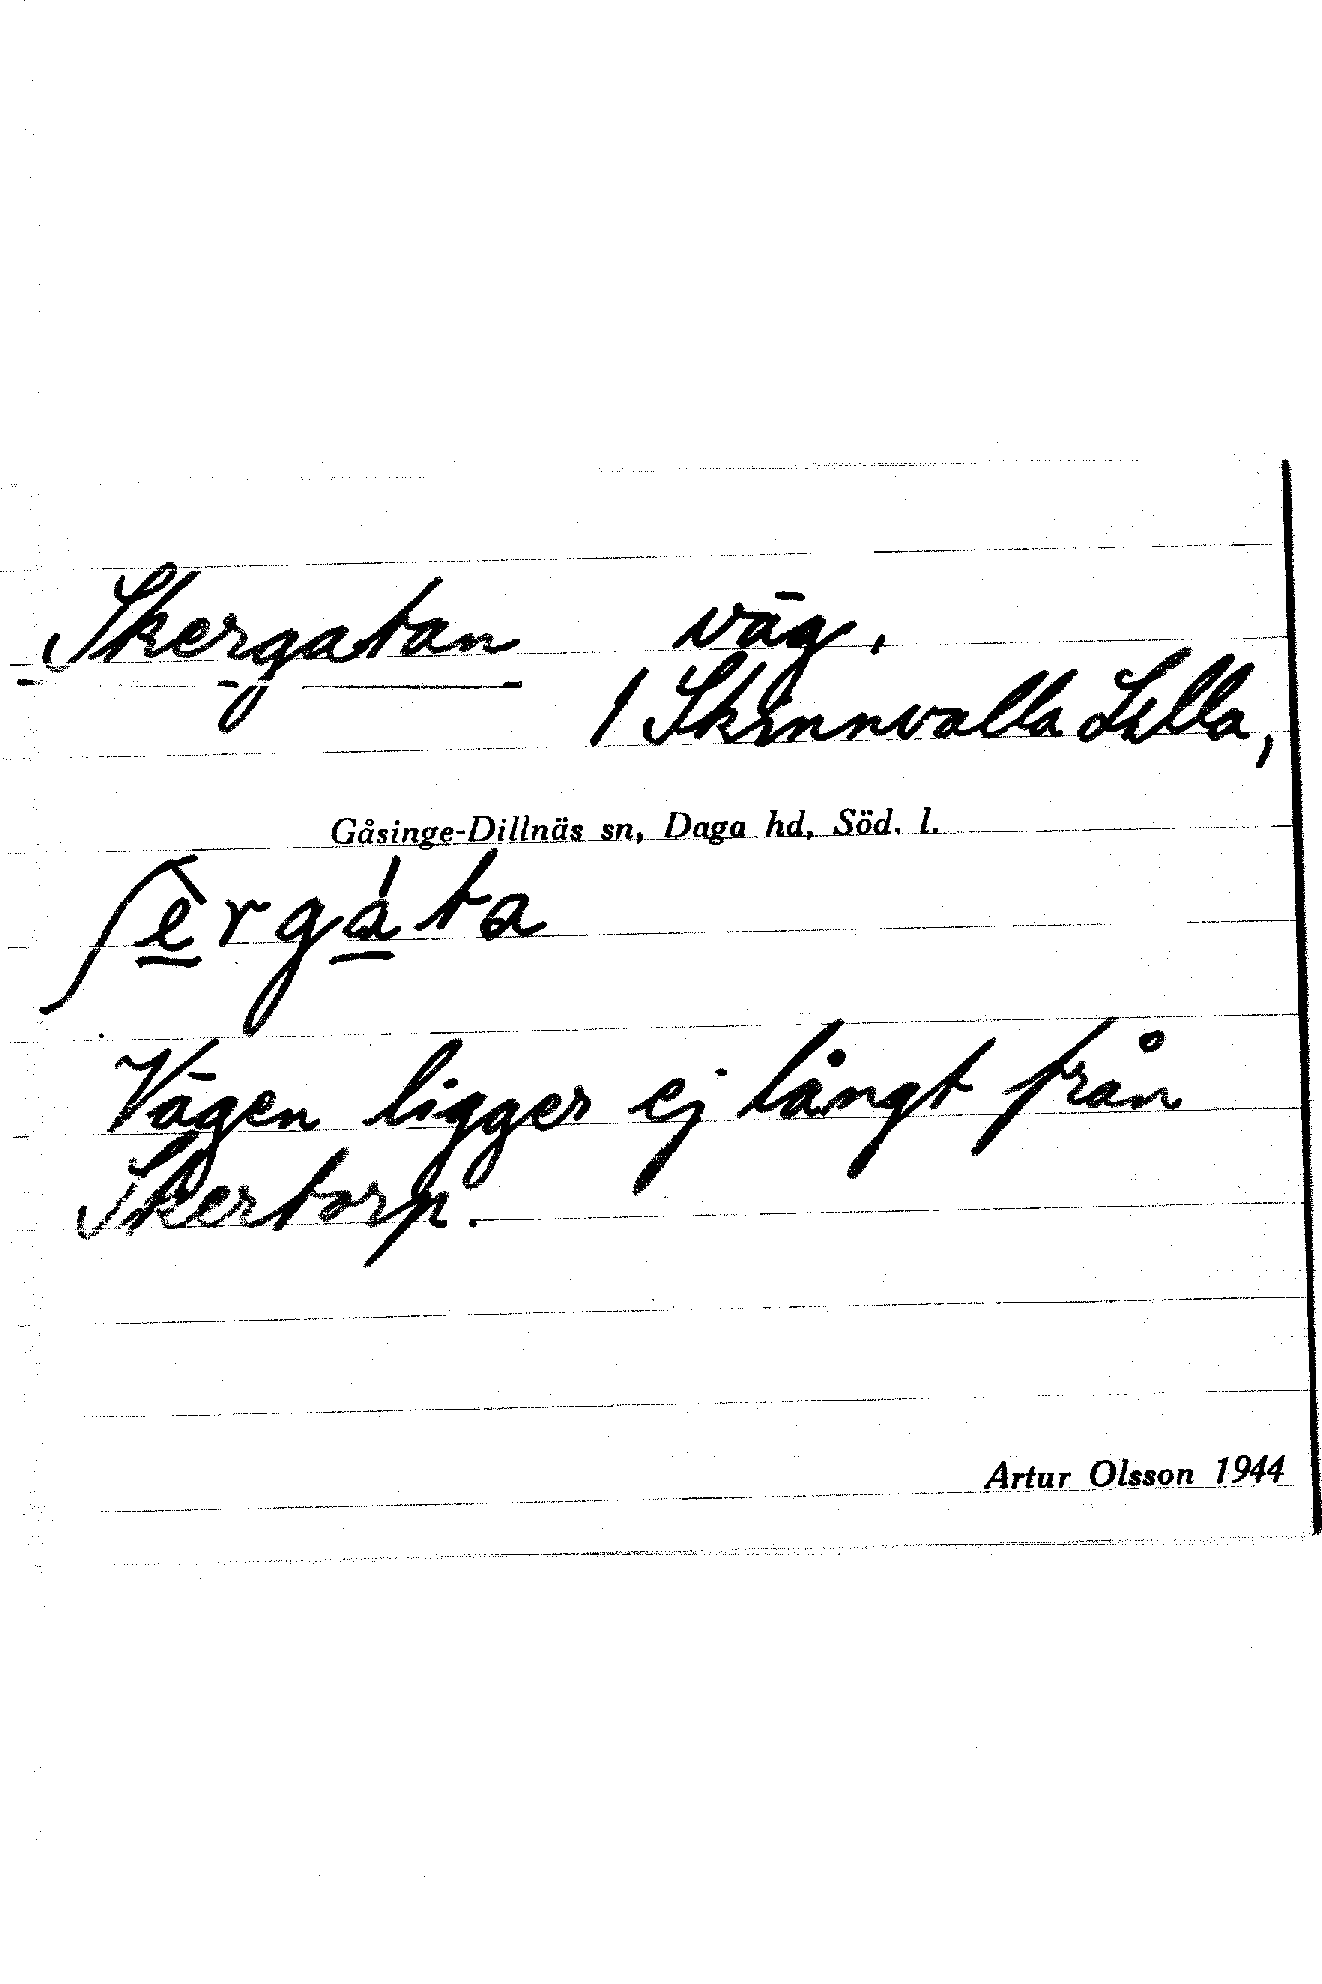 Skergatan väg,
/ Skinnvalla Lilla,
Gåsinge-Dillnäs sn, Daga hd, Söd. l.
ʃèrgáta
Vägen ligger ej långt från
Skertorp.
Artur Olsson 1944